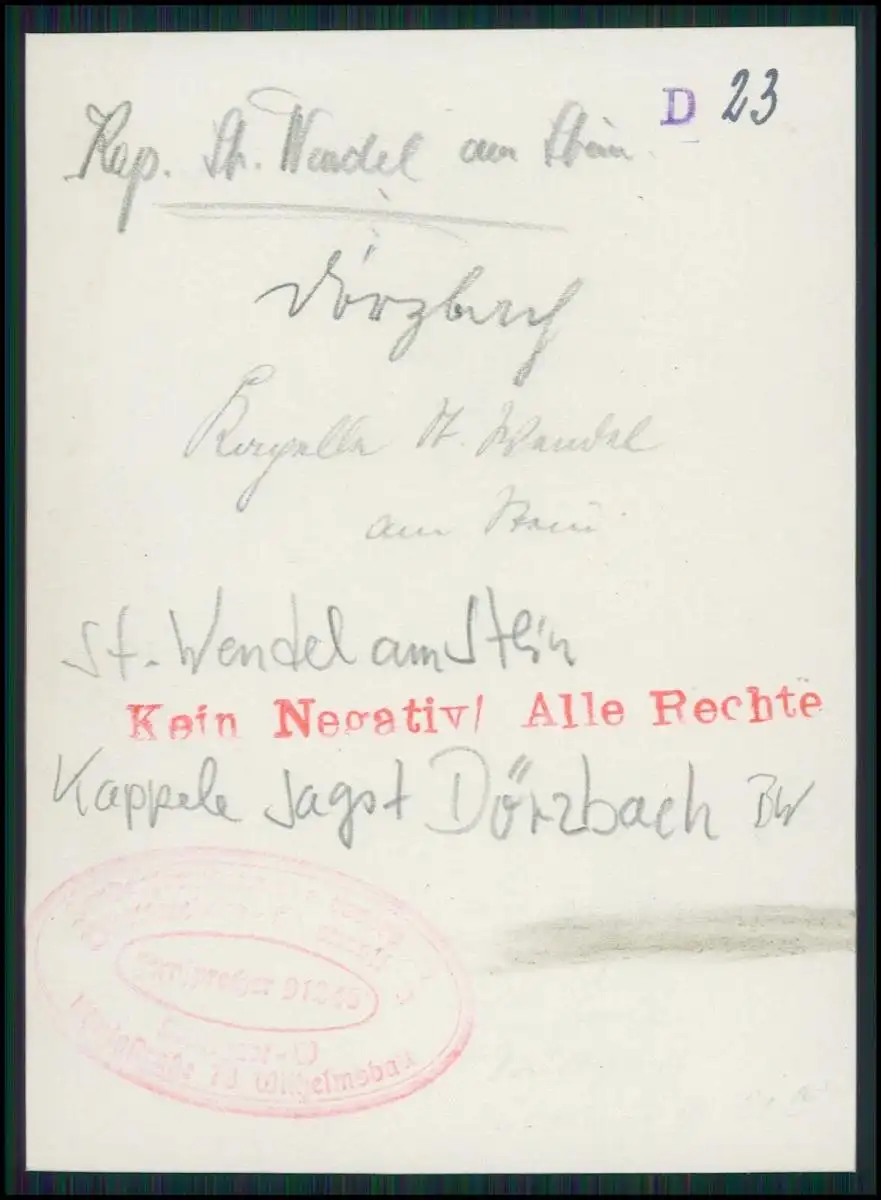 D 23
Kap. St. Wendel am Stein
Dörzbach
Kapelle St. Wendel
am Stein
St. Wendel am Stein
Kein Negativ! Alle Rechte
Kappele Jagst Dörzbach BW
Fernsprecher 91245
Wilhelmsbau